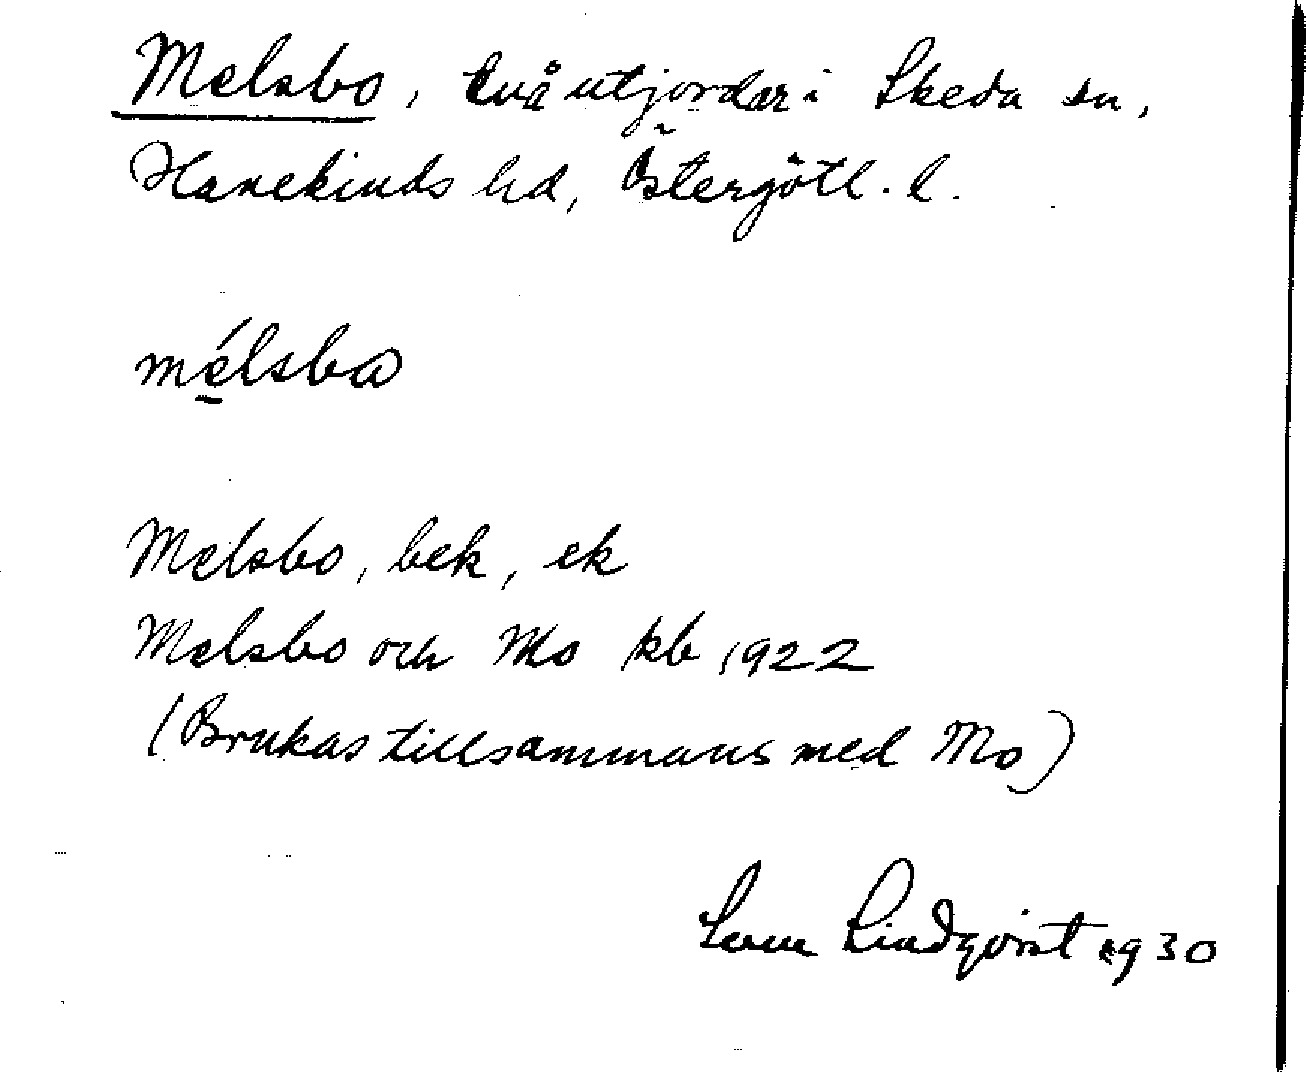 Melsbo, två utjordar i Skeda sn,
Hanekinds hd, Östergötl. l.
mélsbω
Melsbo, bek, ek
Melsbo och Mo kb 1922
(Brukas tillsammans med Mo)
Lindqvist 1930